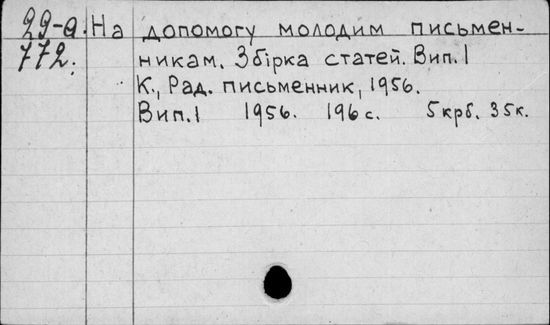 29-а. На допомогу молодим письмен-
772. никам. Збірка статей. Вип. 1
К., Рад. письменник, 1956.
Вип. 1 1956. 196 с. 5 крб. 35 к.